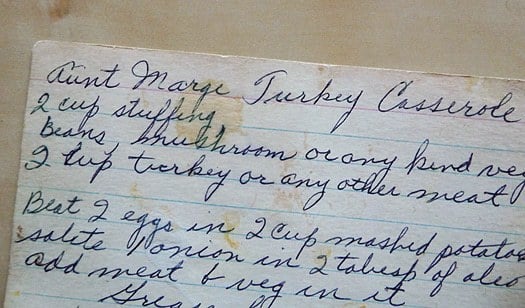 Aunt Marge Turkey Casserole
2 cup stuffing
Beans, mushroom or any kind veg
2 cup turkey or any other meat
Beat 2 eggs in 2 cup mashed potatoes
salite 1 onion in 2 tablesp of oleo
add meat & veg in it